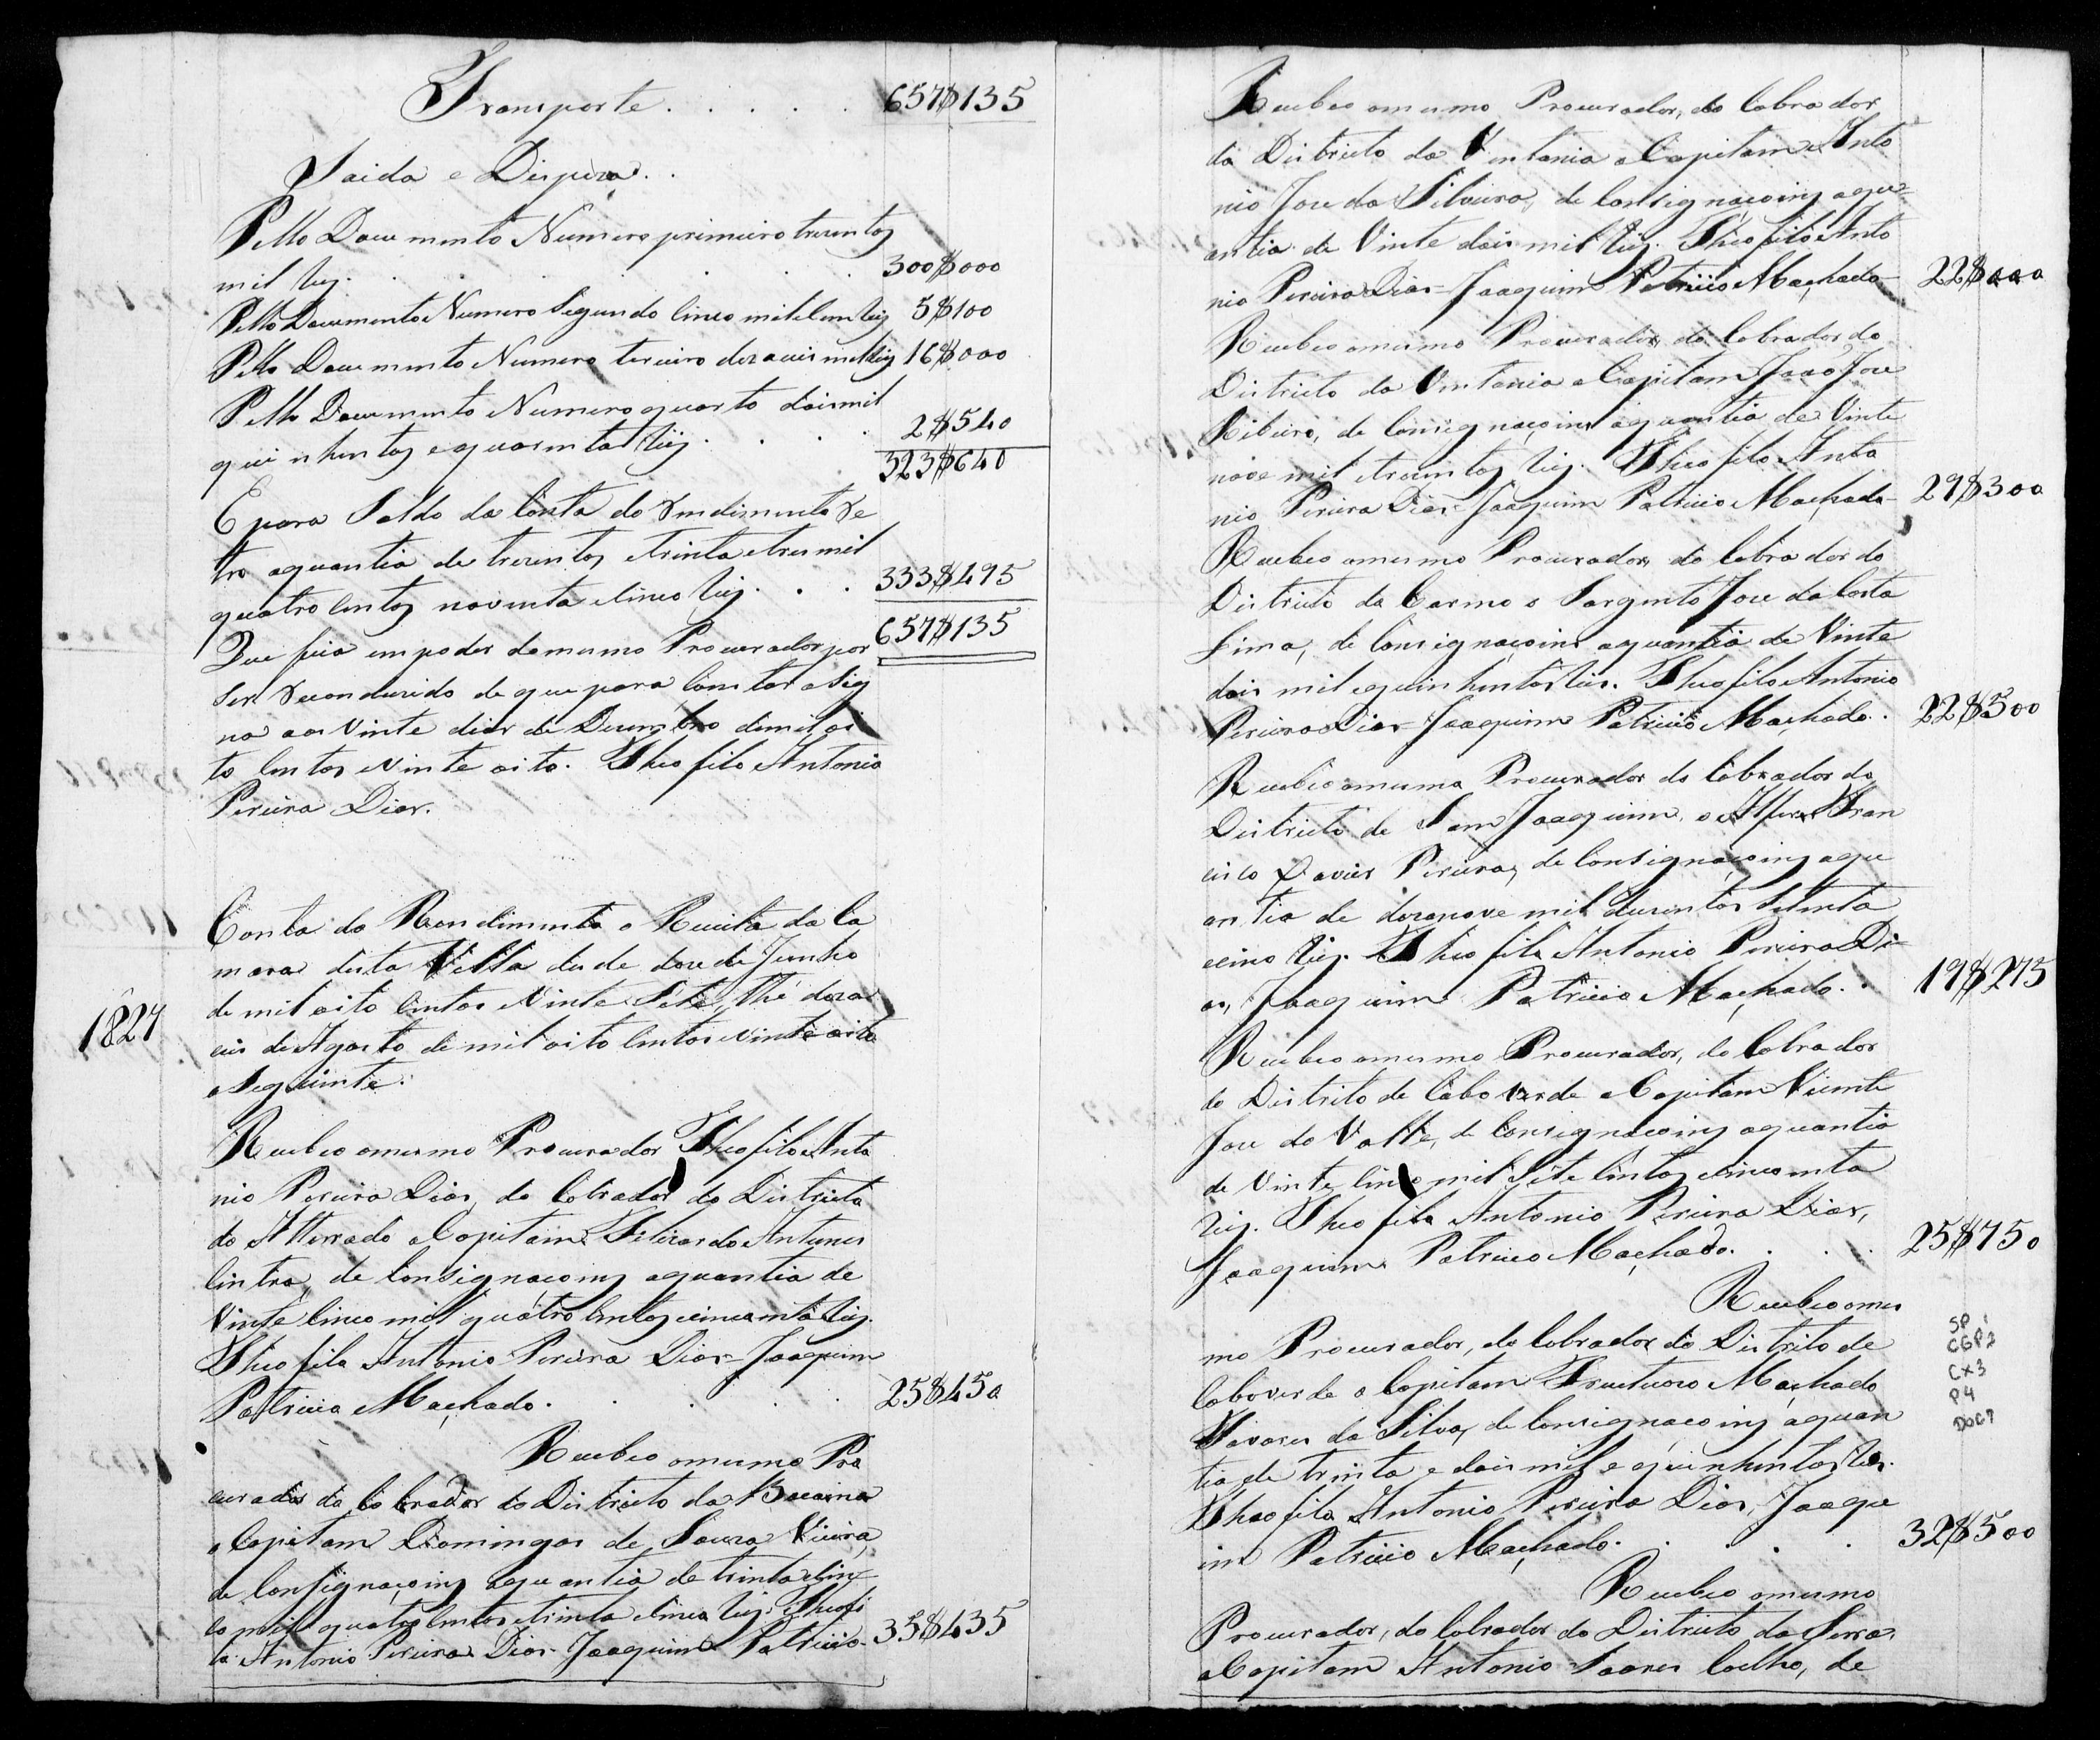 Transporte . . . . . 657$135
Saida e Dispeza . .
Pello Documento Numero primeiro trezentos
mil reis . . . . . . 300$000
Pello Documento Numero Segundo Cinco mil e Cem reis 5$100
Pello Documento Numero terceiro dezaceis mil reis 16$000
Pello Documento Numero quarto dois mil
quinhentos e quarenta reis . . . . 2$540
323$640
E para Saldo da Conta do Rendimento Re
tro aquantia de trezentos e trinta e tres mil
quatro Centos noventa e Cinco reis . . . 333$495
657$135
Que fica em poder do mesmo Procurador por
Ser reconduzido de que para Constar asig
na aos Vinte dias de Dezembro de mil oi
to Centos e Vinte oito. Theofilo Antonio
Pereira Dias.
Conta do Rendimento e Receita da Ca
mara desta Villa desde doze de Junho
1827
de mil oito Centos e Vinte Sete, the deza
ceis de Agosto de mil oito Centos e Vinte oito
o Seguinte.
Recebeo o mesmo Procurador Theofilo Anto
nio Pereira Dias, do Cobrador do Districto
do Atterrado o Capitam Felizardo Antunes
Cintra, de Consignaçoins aquantia de
Vinte Cinco mil quatro Centos e cincoenta reis.
Theofilo Antonio Pereira Dias = Joaquim
Patricio Machado . . . . . 25$450
Recebeo o mesmo Pro
curador do Cobrador do Districto da Bocaina
o Capitam Domingos de Souza Vieira,
de Consignaçoins aquantia de trinta e Cin
co mil quatro Centos e trinta e Cinco reis. Theofi
lo Antonio Pereira Dias = Joaquim Patricio 35$435
Recebeo o mesmo Procurador, do Cobrador
do Districto da Ventania o Capitam Anto
nio Joze da Silveira, de Consignaçoins aqu
antia de Vinte dois mil reis. Theofilo Anto
nio Pereira Dias = Joaquim Patricio Machado 22$000
Recebeo o mesmo Procurador, do Cobrador do
Districto da Ventania o Capitam João Joze
Ribeiro, de Consignaçoins aquantia de Vinte
nove mil e trezentos reis. Theofilo Anto
nio Pereira Dias = Joaquim Patricio Machado 29$300
Recebeo o mesmo Procurador, do Cobrador do
Districto do Carmo o Sargento Joze da Costa
Lima, de Consignaçoins aquantia de Vinte
dois mil e quinhentos reis. Theofilo Antonio
Pereira Dias = Joaquim Patricio Machado . 22$500
Recebeo o mesmo Procurador do Cobrador do
Districto de Sam Joaquim, o Alferes Fran
cisco Xavier Pereira, de Consignaçoins aqu
antia de dezanove mil duzentos Setenta
e cinco reis. Theofilo Antonio Pereira Di
as, Joaquim Patricio Machado. . 19$275
Recebeo o mesmo Procurador, do Cobrador
do Distrito de Caboverde o Capitam Vicente
Joze do Valle, de Consignaçoins aquantia
de Vinte Cinco mil Sete Centos e cincoenta
reis. Theofilo Antonio Pereira Dias,
Joaquim Patricio Machado. . . . 25$750
Recebeo o mes
mo Procurador, do Cobrador do Distrito de
Caboverde o Capitam Fructuozo Machado
Tavares da Silva, de Consignaçoins aquan
tia de trinta e dois mil e quinhentos reis.
Theofilo Antonio Pereira Dias, Joaqu
im Patricio Machado. . . . 32$500
Recebeo o mesmo
Procurador, do Cobrador do Districto da Serra
o Capitam Antonio Soares Coelho, de
SP
CGP2
CX3
P4
DOC7